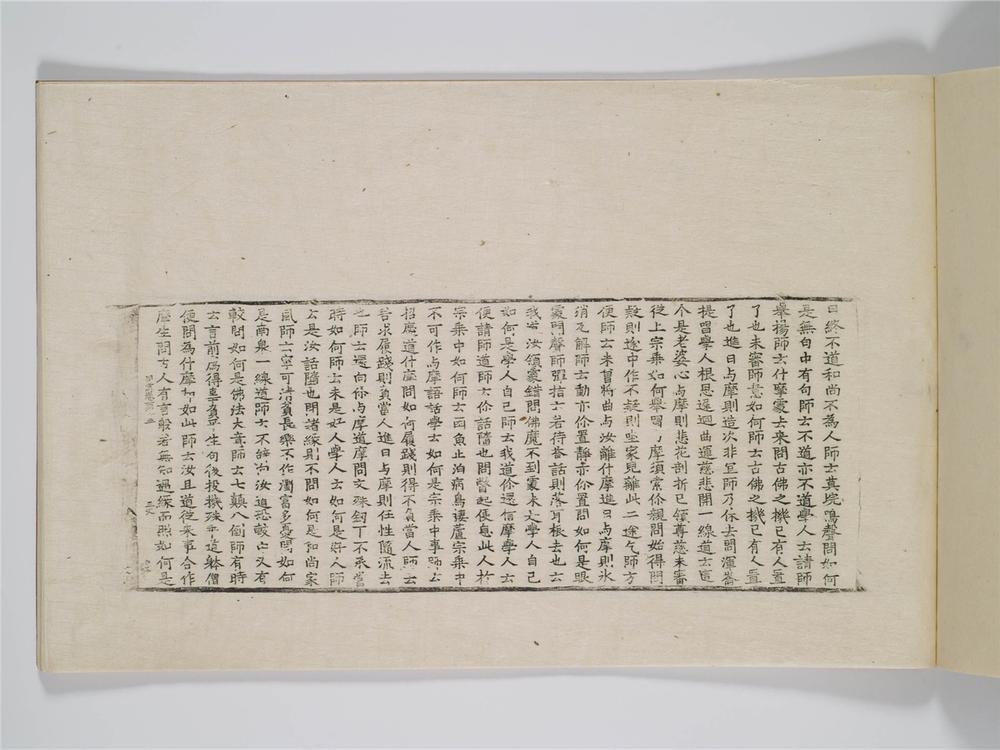 日終不道和尚不為人師云莫屍鳴聲問如何
是無句中有句師云不道亦不道學人云請師
舉揚師云什摩處去來問古佛之機已有人置
了也未審師意如何師云古佛之機已有人置
了也進日与摩則造次非宜師乃休去問渾崙
提唱學人根思遲迴曲運慈悲開一線道士云這
个是老婆心与摩則悲花剖折已領尊慈未審
從上宗乘如何舉唱与摩須索你親問始得問
疑則途中作不疑則坐家兒離此二途乞師方
便師云未曾將曲与汝離什摩進日与摩則氷
消瓦解師云動亦你置靜亦你置問如何是眼
處聞聲師彈指云若待答話則落耳根去也云
汝領處錯問佛魔不到處未是學人自己
如何是學人自己師云我道你還信摩學人云
便請師道師云你話墮也問瞥起便息此人於
宗乘中如何師云困魚止泊病鳥棲蘆宗乘中
不可作与摩語話學云如何是宗乘中事師云
招慶道什摩問如何履踐則得不負當人師云
若求履踐則負當人進日与摩則任性隨流去
也師云還向你与摩道摩問文殊釰下不承當
時如何師云未是好人學人云如何是好人師
云是汝話墮也問諸緣則不問如何是和尚家
風師云寧可清貧長樂不作濁富多憂問如何
是南泉一線道師云不辞向汝道恐較中又有
較問如何是佛法大意師云七顛八倒師有時
云言前為得辜負平生句後投機殊乖道躰僧
便問為什摩却如此師云汝且道從來事合作
麼生問古人有言般若無知遇緣而照如何是